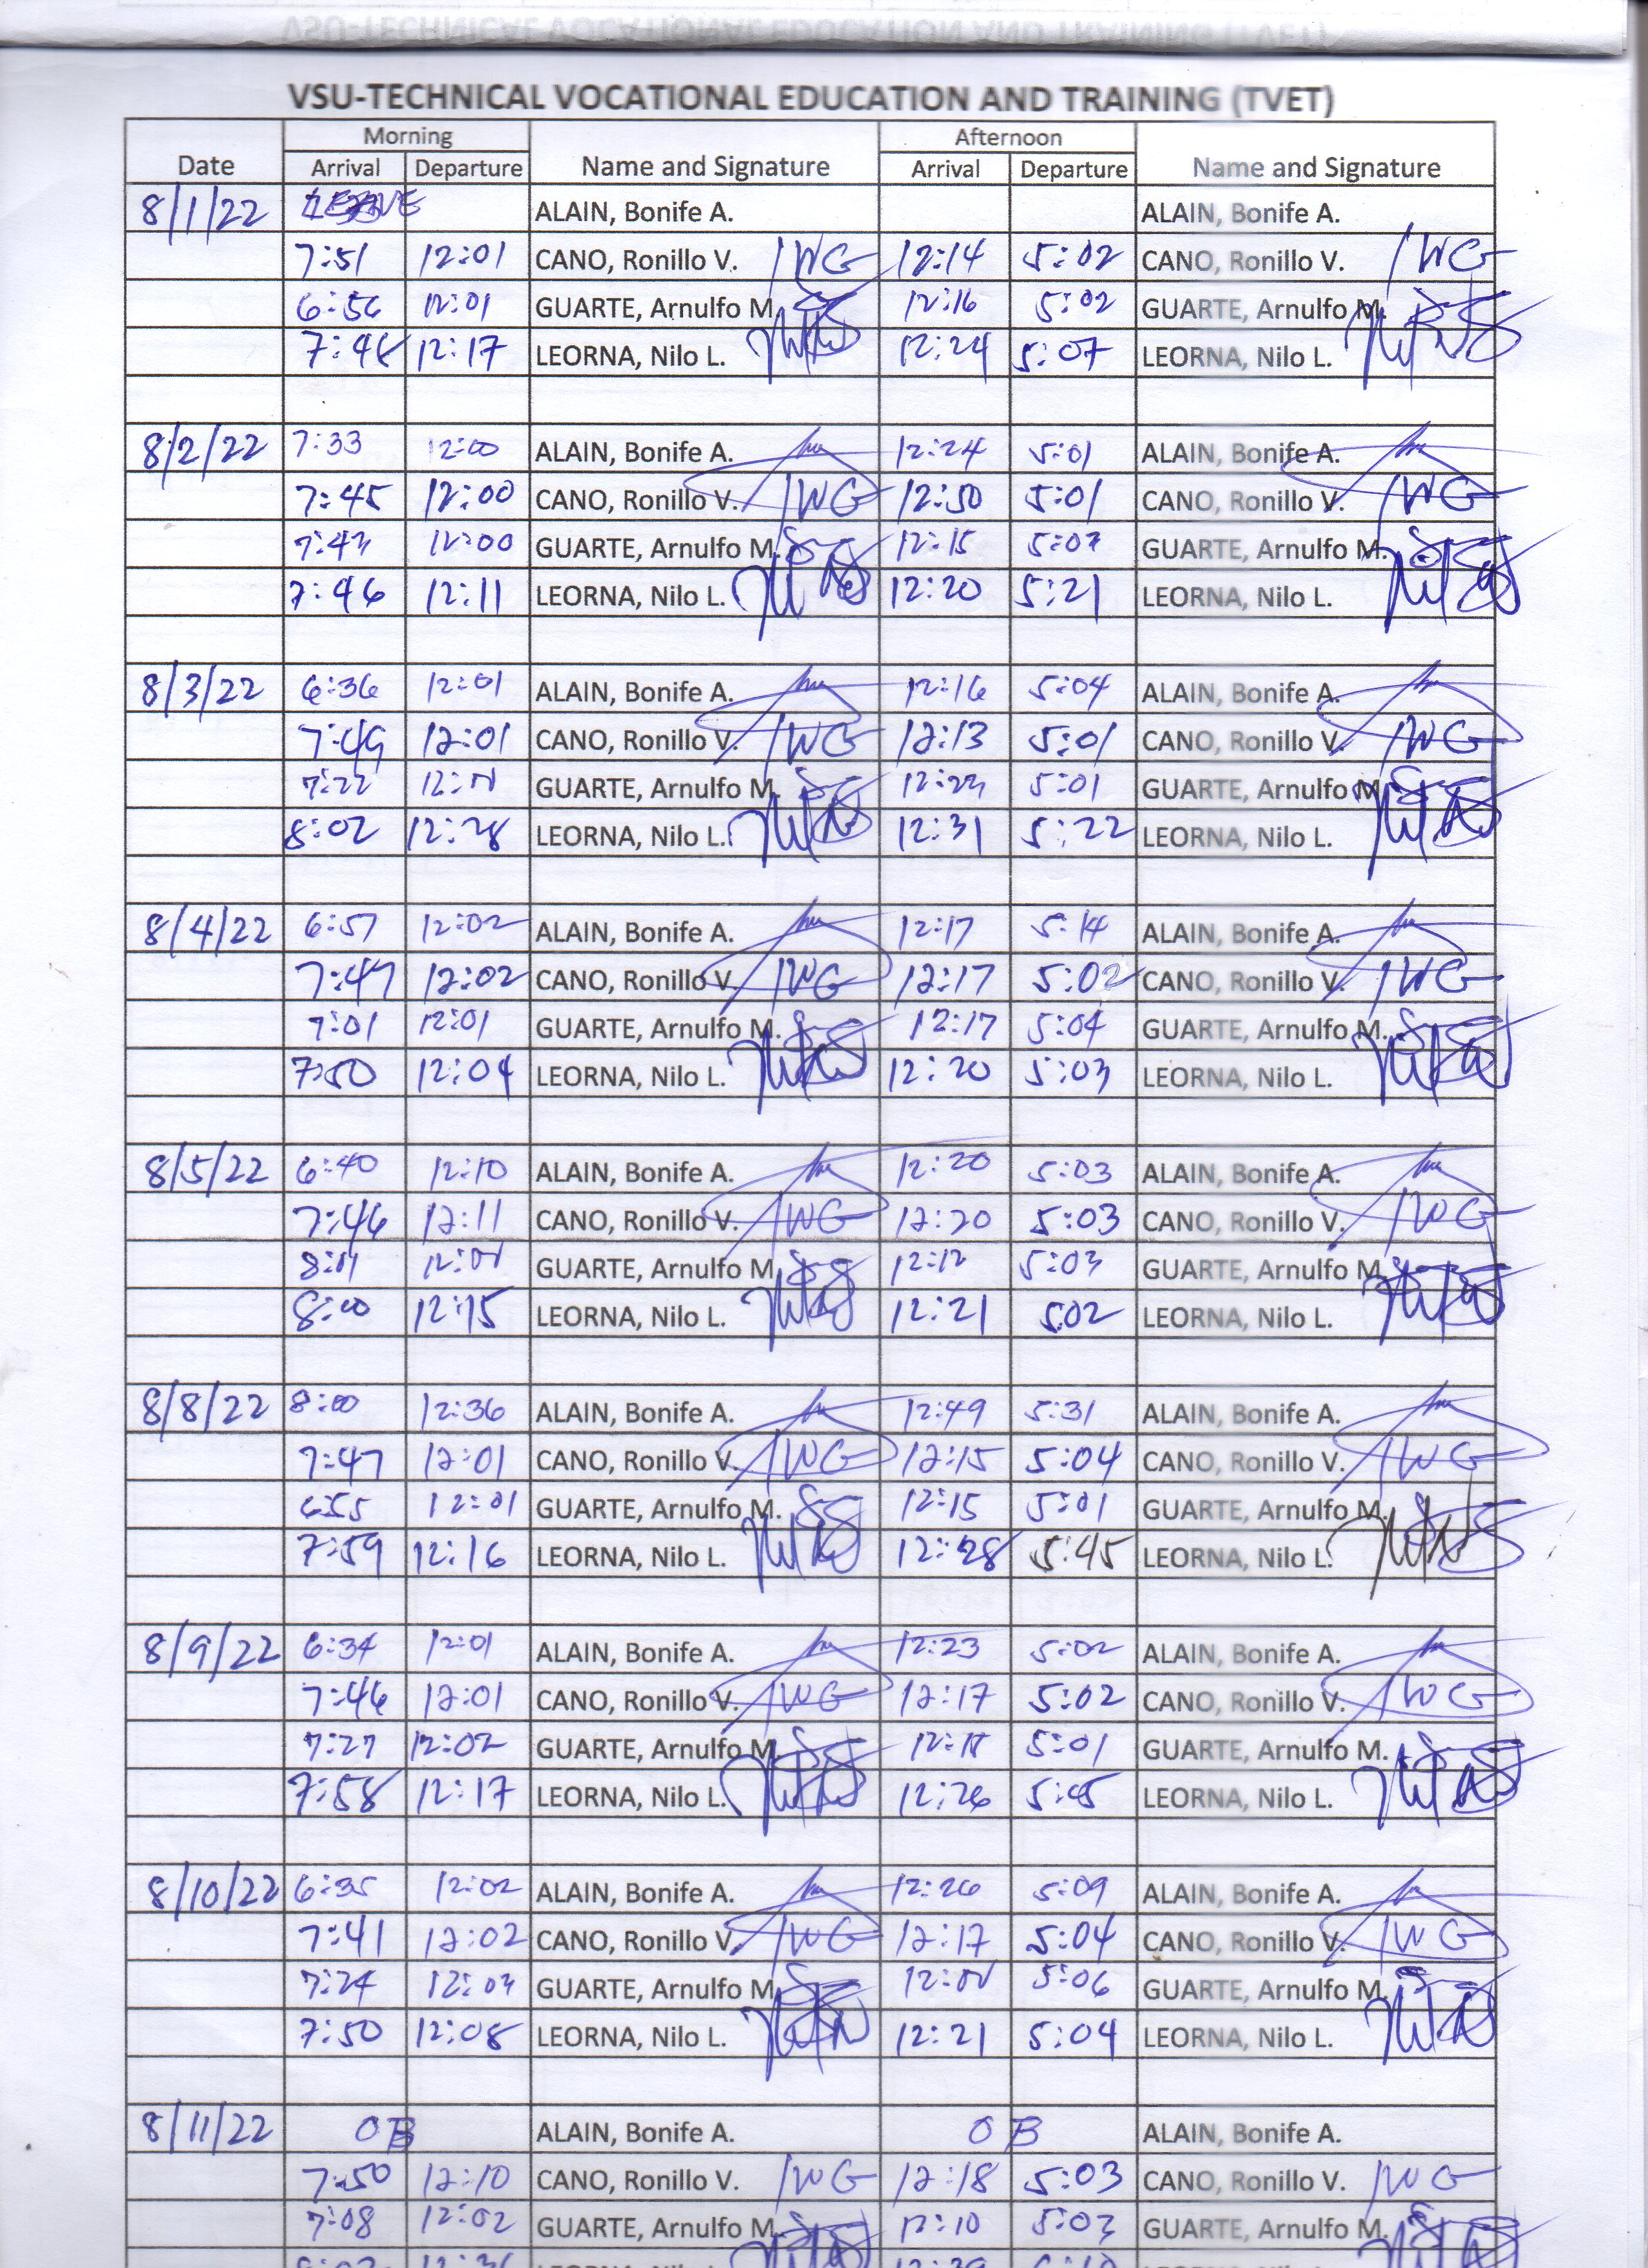 VSU-TECHNICAL VOCATIONAL EDUCATION AND TRAINING (TVET)
Date Morning Name and Signature Afternoon Name and Signature
Arrival Departure Arrival Departure
8/1/22 LEAVE ALAIN, Bonife A. ALAIN, Bonife A.
7:51 12:01 CANO, Ronillo V. 12:14 5:02 CANO, Ronillo V.
6:56 12:01 GUARTE, Arnulfo M. 12:16 5:02 GUARTE, Arnulfo M.
12:17 LEORNA, Nilo L. 12:24 5:07 LEORNA, Nilo L.
8/2/22 7:33 12:00 ALAIN, Bonife A. 12:24 5:01 ALAIN, Bonife A.
7:45 12:00 CANO, Ronillo V. 12:50 5:01 CANO, Ronillo V.
12:00 GUARTE, Arnulfo M. 12:15 GUARTE, Arnulfo M.
7:46 12:11 LEORNA, Nilo L. 12:20 5:21 LEORNA, Nilo L.
8/3/22 6:36 12:01 ALAIN, Bonife A. 12:16 5:04 ALAIN, Bonife A.
7:49 12:01 CANO, Ronillo V. 12:13 5:01 CANO, Ronillo V.
7:22 GUARTE, Arnulfo M. 5:01 GUARTE, Arnulfo M.
8:02 12:28 LEORNA, Nilo L. 12:31 5:22 LEORNA, Nilo L.
8/4/22 6:57 12:02 ALAIN, Bonife A. 12:17 5:14 ALAIN, Bonife A.
7:47 12:02 CANO, Ronillo V. 12:17 5:02 CANO, Ronillo V.
7:01 12:01 GUARTE, Arnulfo M. 12:17 5:04 GUARTE, Arnulfo M.
7:50 12:04 LEORNA, Nilo L. 12:20 5:03 LEORNA, Nilo L.
8/5/22 6:40 12:10 ALAIN, Bonife A. 12:20 5:03 ALAIN, Bonife A.
7:46 12:11 CANO, Ronillo V. 12:20 5:03 CANO, Ronillo V.
GUARTE, Arnulfo M. 12:12 5:03 GUARTE, Arnulfo M.
8:00 12:15 LEORNA, Nilo L. 12:21 5:02 LEORNA, Nilo L.
8/8/22 8:00 12:36 ALAIN, Bonife A. 12:49 5:31 ALAIN, Bonife A.
7:47 12:01 CANO, Ronillo V. 12:15 5:04 CANO, Ronillo V.
6:55 12:01 GUARTE, Arnulfo M. 12:15 5:01 GUARTE, Arnulfo M.
7:59 12:16 LEORNA, Nilo L. 12:28 5:45 LEORNA, Nilo L.
8/9/22 6:34 12:01 ALAIN, Bonife A. 12:23 5:02 ALAIN, Bonife A.
7:46 12:01 CANO, Ronillo V. 12:17 5:02 CANO, Ronillo V.
7:27 12:02 GUARTE, Arnulfo M. 5:01 GUARTE, Arnulfo M.
7:58 12:17 LEORNA, Nilo L. 12:26 5:45 LEORNA, Nilo L.
8/10/22 6:35 12:02 ALAIN, Bonife A. 12:26 5:09 ALAIN, Bonife A.
7:41 12:02 CANO, Ronillo V. 12:17 5:04 CANO, Ronillo V.
7:24 12:03 GUARTE, Arnulfo M. 5:06 GUARTE, Arnulfo M.
7:50 12:08 LEORNA, Nilo L. 12:21 5:04 LEORNA, Nilo L.
8/11/22 OB ALAIN, Bonife A. OB ALAIN, Bonife A.
7:50 12:10 CANO, Ronillo V. 12:18 5:03 CANO, Ronillo V.
7:08 12:02 GUARTE, Arnulfo M. 12:10 5:03 GUARTE, Arnulfo M.